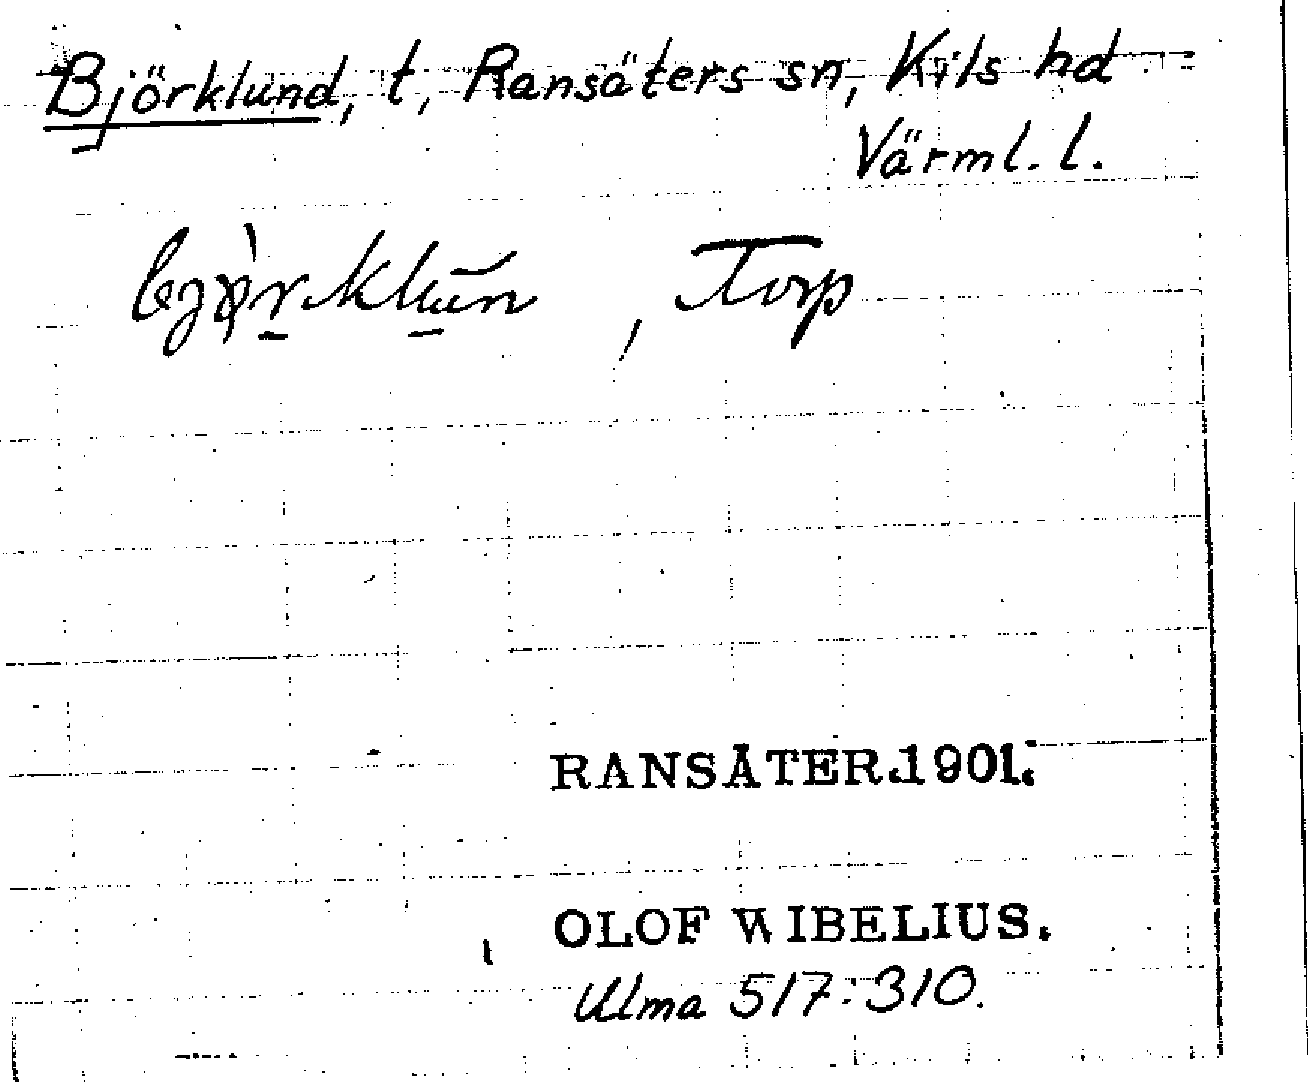 Björklund, t, Ransäters sn, Kils hd
Värml. l.
, Torp
RANSÄTER.1901.
OLOF WIBELIUS.
Ulma 517:310.